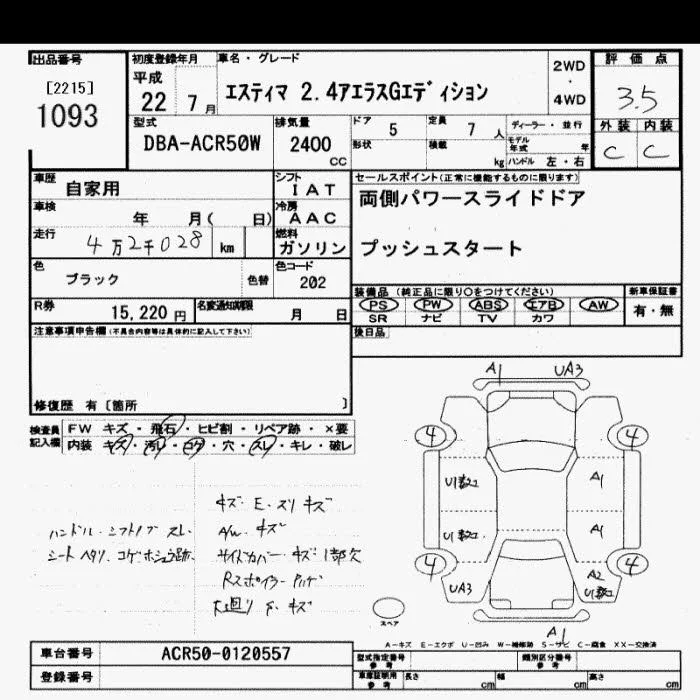 出品番号 初度登録年月 車名・グレード 評価点
[2215] 平成 2WD
1093 22 7月 エスティマ 2.4アエラスGエディション ・ 3.5
4WD
型式 排気量 ドア 5 定員 7人 ディーラー・並行 外装 内装
DBA-ACR50W 2400 cc 形状 積載 kg モデル年式 年 C C
ハンドル 左・右
車歴 自家用 シフト IAT セールスポイント(正常に機能するものに限ります)
車検 年 月( 日) 冷房 AAC 両側パワースライドドア
走行 4万2千028 km 燃料 ガソリン プッシュスタート
色 ブラック 色替 色コード 202
装備品(純正品に限り○をつけてください) 新車保証書
R券 15,220円 名変通知期限 月 日 PS PW ABS エアB AW 有・無
SR ナビ TV カワ
注意事項申告欄(不具合内容等は具体的に記入して下さい) 後日品
修復歴 有〔箇所 〕
検査員記入欄 FW キズ・飛石・ヒビ割・リペア跡・×要
内装 キズ・汚レ・コゲ・穴・スレ・キレ・破レ
A1 UA3
4 4
U1 A1
U1 A1
4 4
UA3 A2
U1
A1
キズ・E・スリキズ
ハンドル・シフトノブスレ A/W キズ
シートヘタリ、コゲホシュウ跡 サイドカバー キズ 1部欠
Rスポイラー
下廻り キズ
スペア
A-キズ E-エクボ U-凹み W-補修跡 S-サビ C-腐食 XX-交換済
車台番号 ACR50-0120557 型式指定番号 参考 類別区分番号 参考
登録番号 車庫証明用 参考 長さ cm 幅 cm 高さ cm